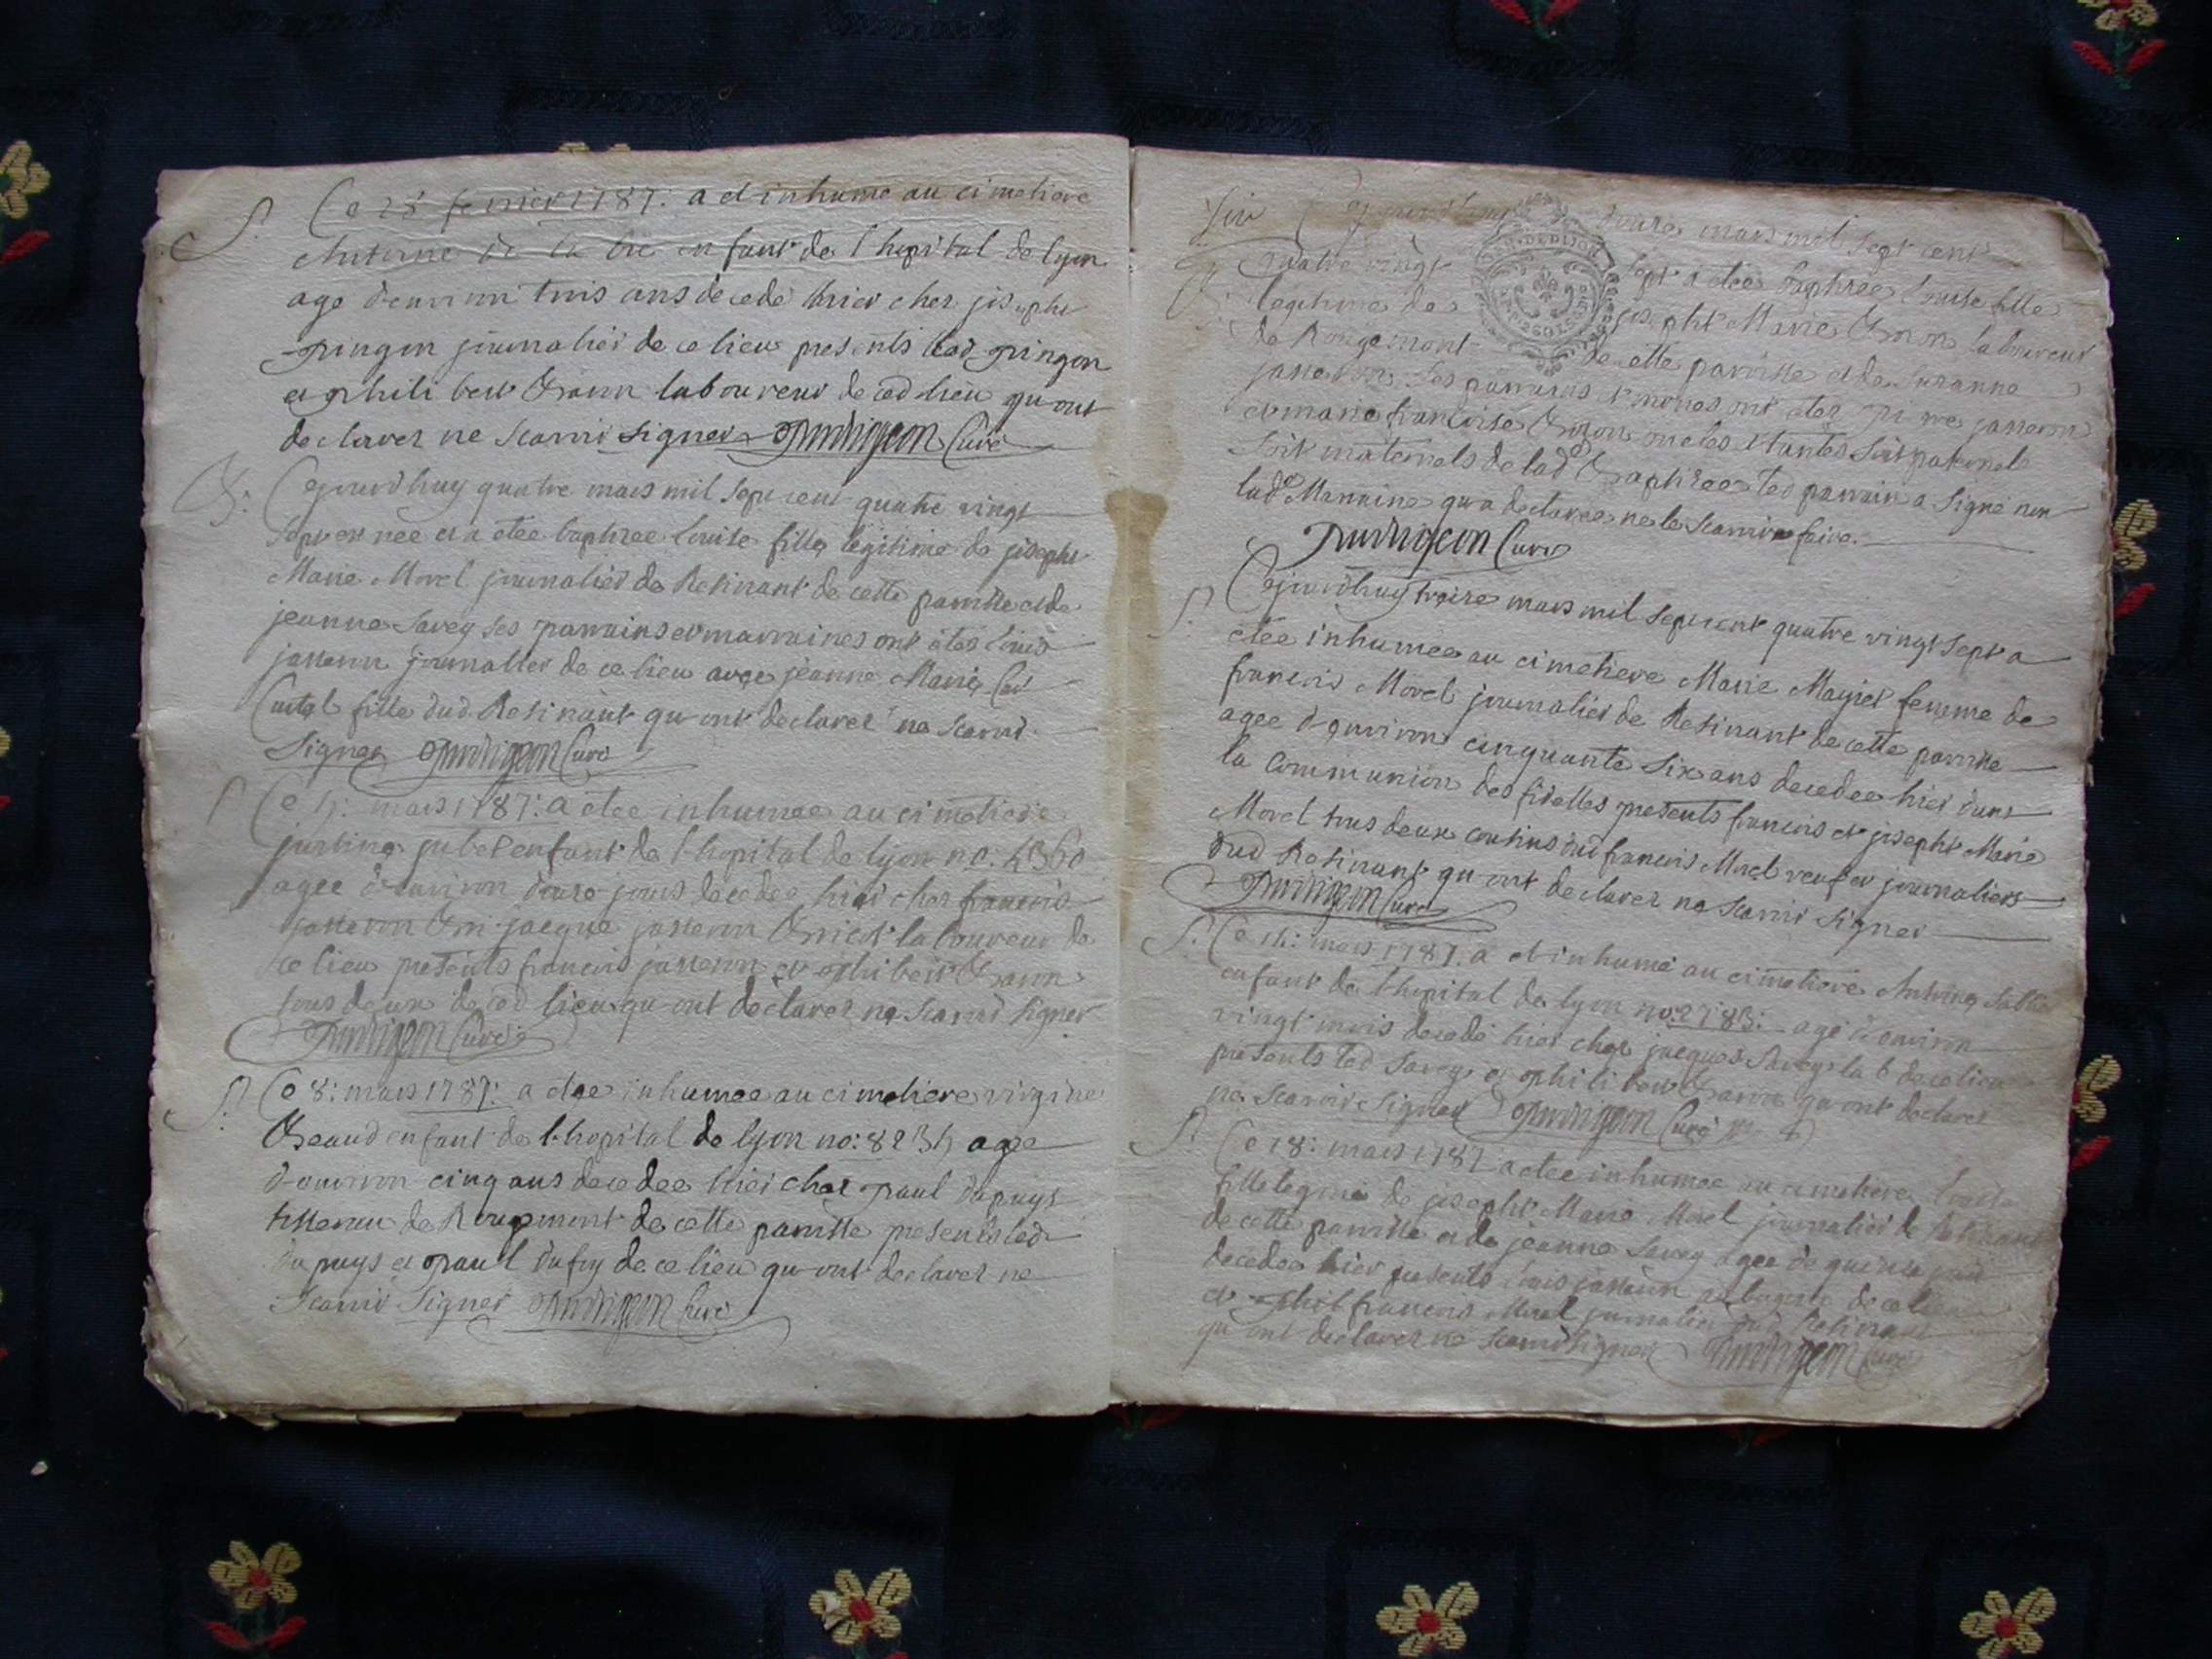 S. Ce 28 fevrier 1787: a et inhume au cimetiere
Antoine de la enfant de l'hopital de lyon
age d'environ trois ans decedé hier chez josephe
pingon journalier de ce lieu presents led. pingon
et philibert laboureur de ced lieu qu'ont
declarer ne scavoir signer Curé
B: Cejourd'huy quatre mars mil sept cent quatre vingt
sept est née et a etée baptizee Louise fille legitime de josephe
Marie Morel journalier de Resinant de cette paroisse et de
jeanne Savey ses parrains et marraines ont etés Louis
josseron journalier de ce lieu avec jeanne Marie
fille dud. Resinant qu'ont declarer ne scavoir
signer Curé
S Ce 4: mars 1787: a etee inhumee au cimetiere
justine jubet enfant de l'hopital de lyon no: 4360
agee d'environ douze jours decedee hier chez francois
josseron jacque josseron laboureur de
ce lieu presents francois josseron et philibert
tous deux de ced lieu qu'ont declarer ne scavoir signer
Curé
S. Ce 8: mars 1787: a etee inhumee au cimetiere virgine
enfant de l'hopital de lyon no: 8234 agee
d'environ cinq ans decedee hier chez paul dupuys
tisserant de Rougemont de cette paroisse presents led
dupuys et paul dufuy de ce lieu qu'ont declarer ne
scavoir signer Curé
Six Cejourd'huy douze mars mil sept cent
B: quatre vingt sept a etée baptizée Louise fille
legitime de joseph Marie laboureur
de Rougemont de cette paroisse et de Suzanne
josseron ses parrains et mares ont etes pierre josseron
et marie francoise oncles et tantes soit paternels
soit maternels de lad baptizee led parrain a signé non
lad Marraine qu'a declaree ne le scavoir faire.
Curé
S. Cejourd'huy treize mars mil sept cent quatre vingt sept a
etée inhumée au cimetiere Marie femme de
francois Morel journalier de Resinant de cette paroisse
agee d'environ cinquante six ans decedee hier dans
la Communion des fidelles presents francois et joseph Marie
Morel tous deux cousins dud francois Morel veuf et journaliers
dud Resinant qu'ont declarer ne scavoir signer
Curé
S. Ce 14: mars 1787. a et inhumé au cimetiere Antoine
enfant de l'hopital de lyon no: 2783: agé d'environ
vingt mois decedé hier chez jacques Savey lab de ce lieu
presents led Savey et philibert qu'ont declarer
ne scavoir signer Curé
S. Ce 18: mars 1787 a etee inhumee au cimetiere Louise
fille legme de joseph Marie Morel journalier de Resinant
de cette paroisse et de jeanne Savey agee de quinze jours
decedee hier presents Louis josseron de ce lieu
et francois Morel journalier dud Resinant
qu'ont declarer ne scavoir signer Curé